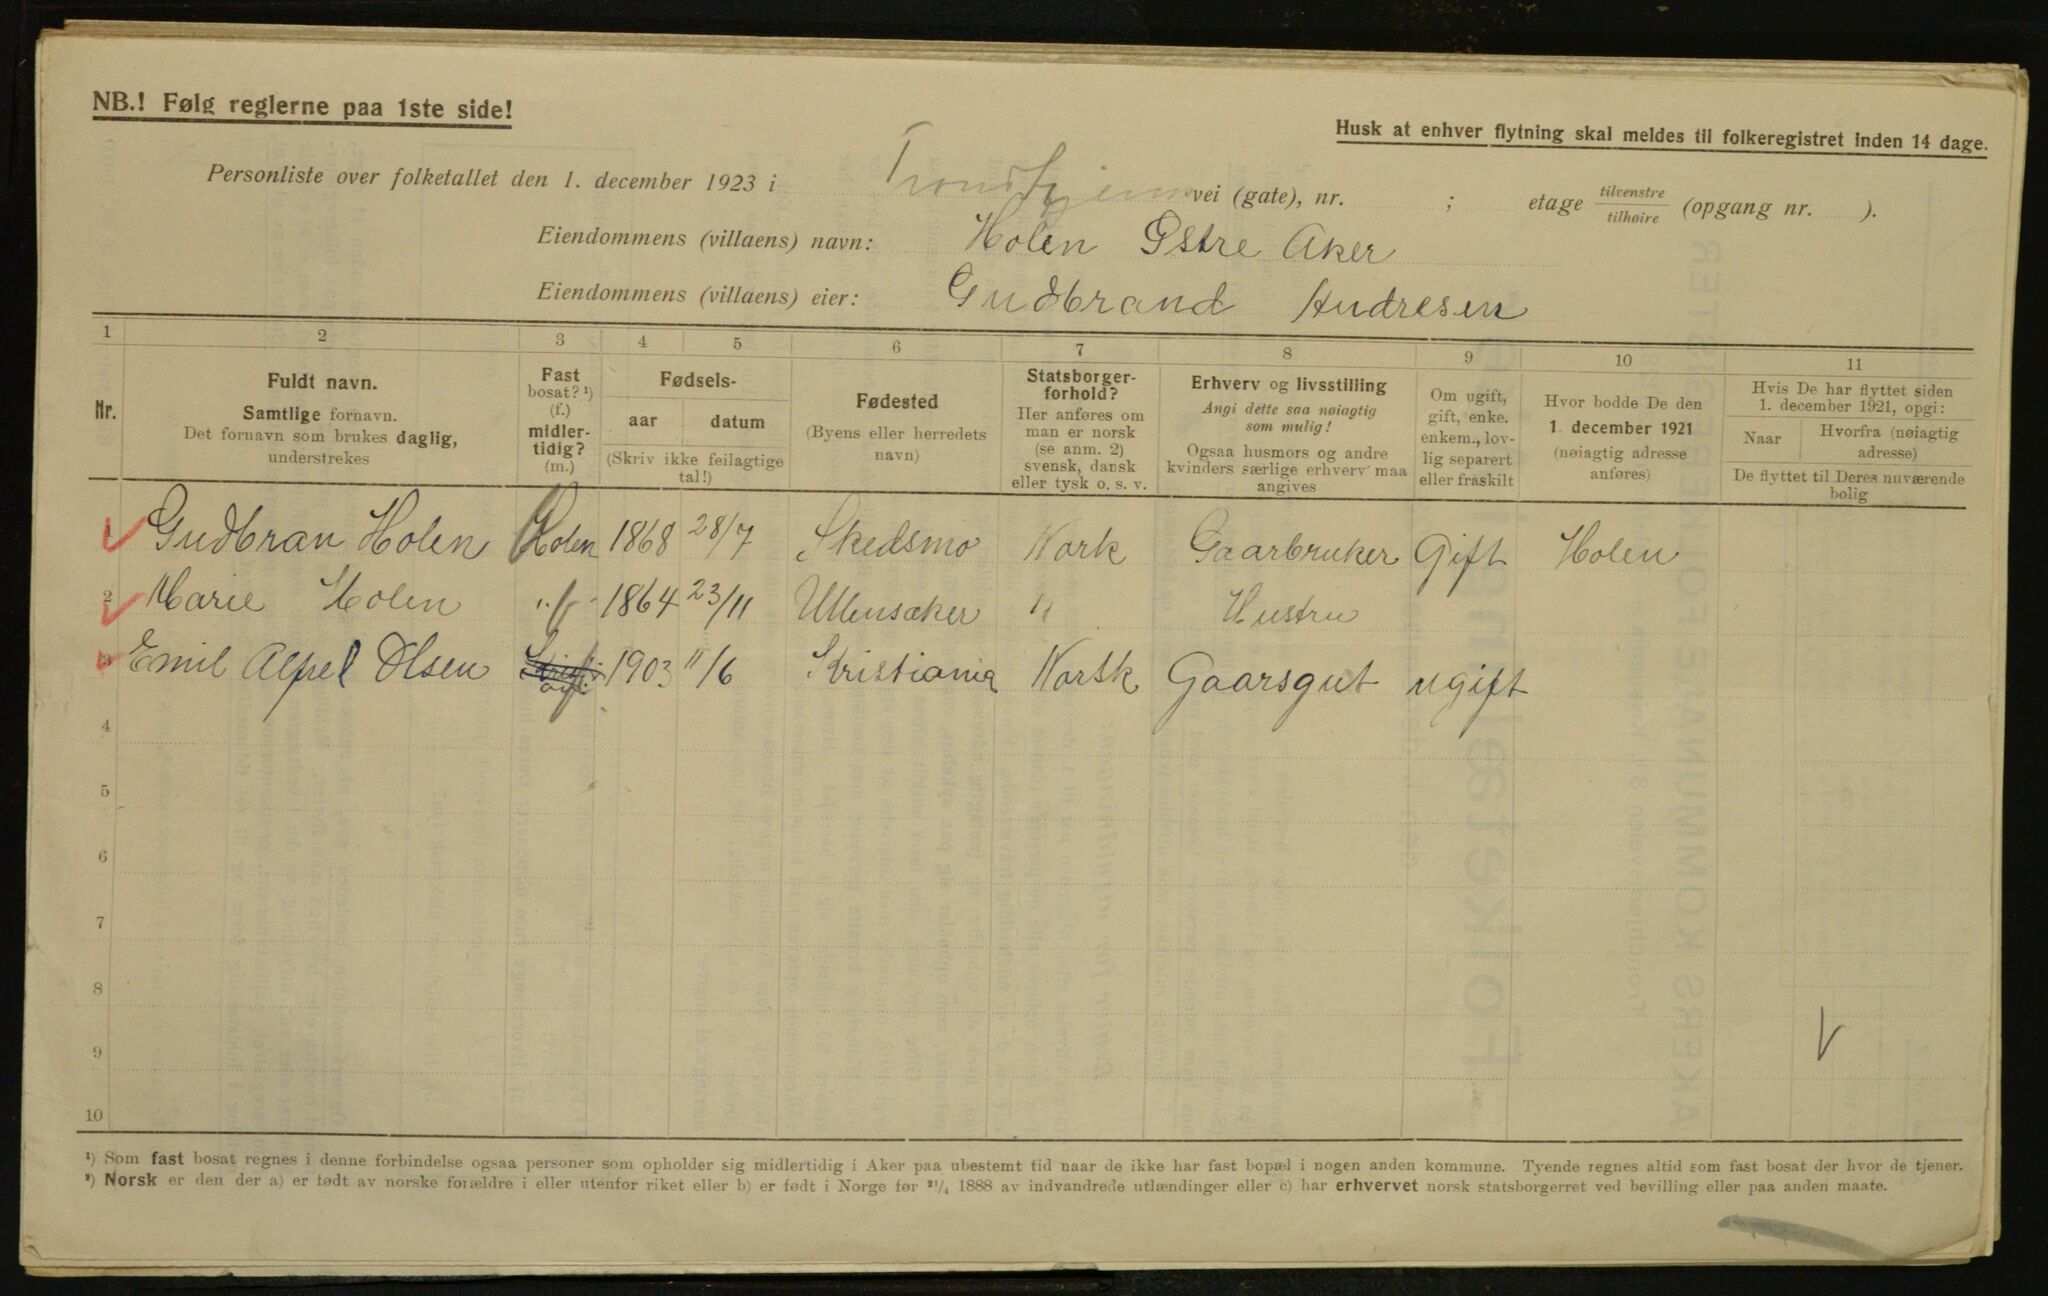 NB.! Følg reglerne paa 1ste side!
Husk at enhver flytning skal meldes til folkeregistret inden 14 dage.
Personliste over folketallet den 1. december 1923 i Trondhjemsvei (gate), nr. ; etage tilvenstre tilhøire (opgang nr. ).
Eiendommens (villaens) navn: Holen Østre Aker
Eiendommens (villaens) eier: Gudbrand Andresen
1 2 3 4 5 6 7 8 9 10 11
Nr.
Fuldt navn.
Samtlige fornavn.
Det fornavn som brukes daglig,
understrekes
Fast
bosat? ¹)
(f.)
midler-
tidig?
(m.)
Fødsels-
aar datum
(Skriv ikke feilagtige
tal!)
Fødested
(Byens eller herredets
navn)
Statsborger-
forhold?
Her anføres om
man er norsk
(se anm. 2)
svensk, dansk
eller tysk o. s. v.
Erhverv og livsstilling
Angi dette saa nøiagtig
som mulig!
Ogsaa husmors og andre
kvinders særlige erhverv maa
angives
Om ugift,
gift, enke.
enkem., lov-
lig separert
eller fraskilt
Hvor bodde De den
1. december 1921
(nøiagtig adresse
anføres)
Hvis De har flyttet siden
1. december 1921, opgi:
Naar Hvorfra (nøiagtig
adresse)
De flyttet til Deres nuværende
bolig
1 Gudbran Holen Holen 1868 28/7 Skedsmo Nork Gaarbruker Gift Holen
2 Marie Holen " f 1864 23/11 Ullensaker " Hustru
3 Emil Alpel Olsen 1903 11/6 Kristiania Norsk Gaarsgut ugift
4
5
6
7
8
9
10
¹) Som fast bosat regnes i denne forbindelse ogsaa personer som opholder sig midlertidig i Aker paa ubestemt tid naar de ikke har fast bopæl i nogen anden kommune. Tyende regnes altid som fast bosat der hvor de tjener.
²) Norsk er den der a) er født av norske forældre i eller utenfor riket eller b) er født i Norge før ²¹/₄ 1888 av indvandrede utlændinger eller c) har erhvervet norsk statsborgerret ved bevilling eller paa anden maate.